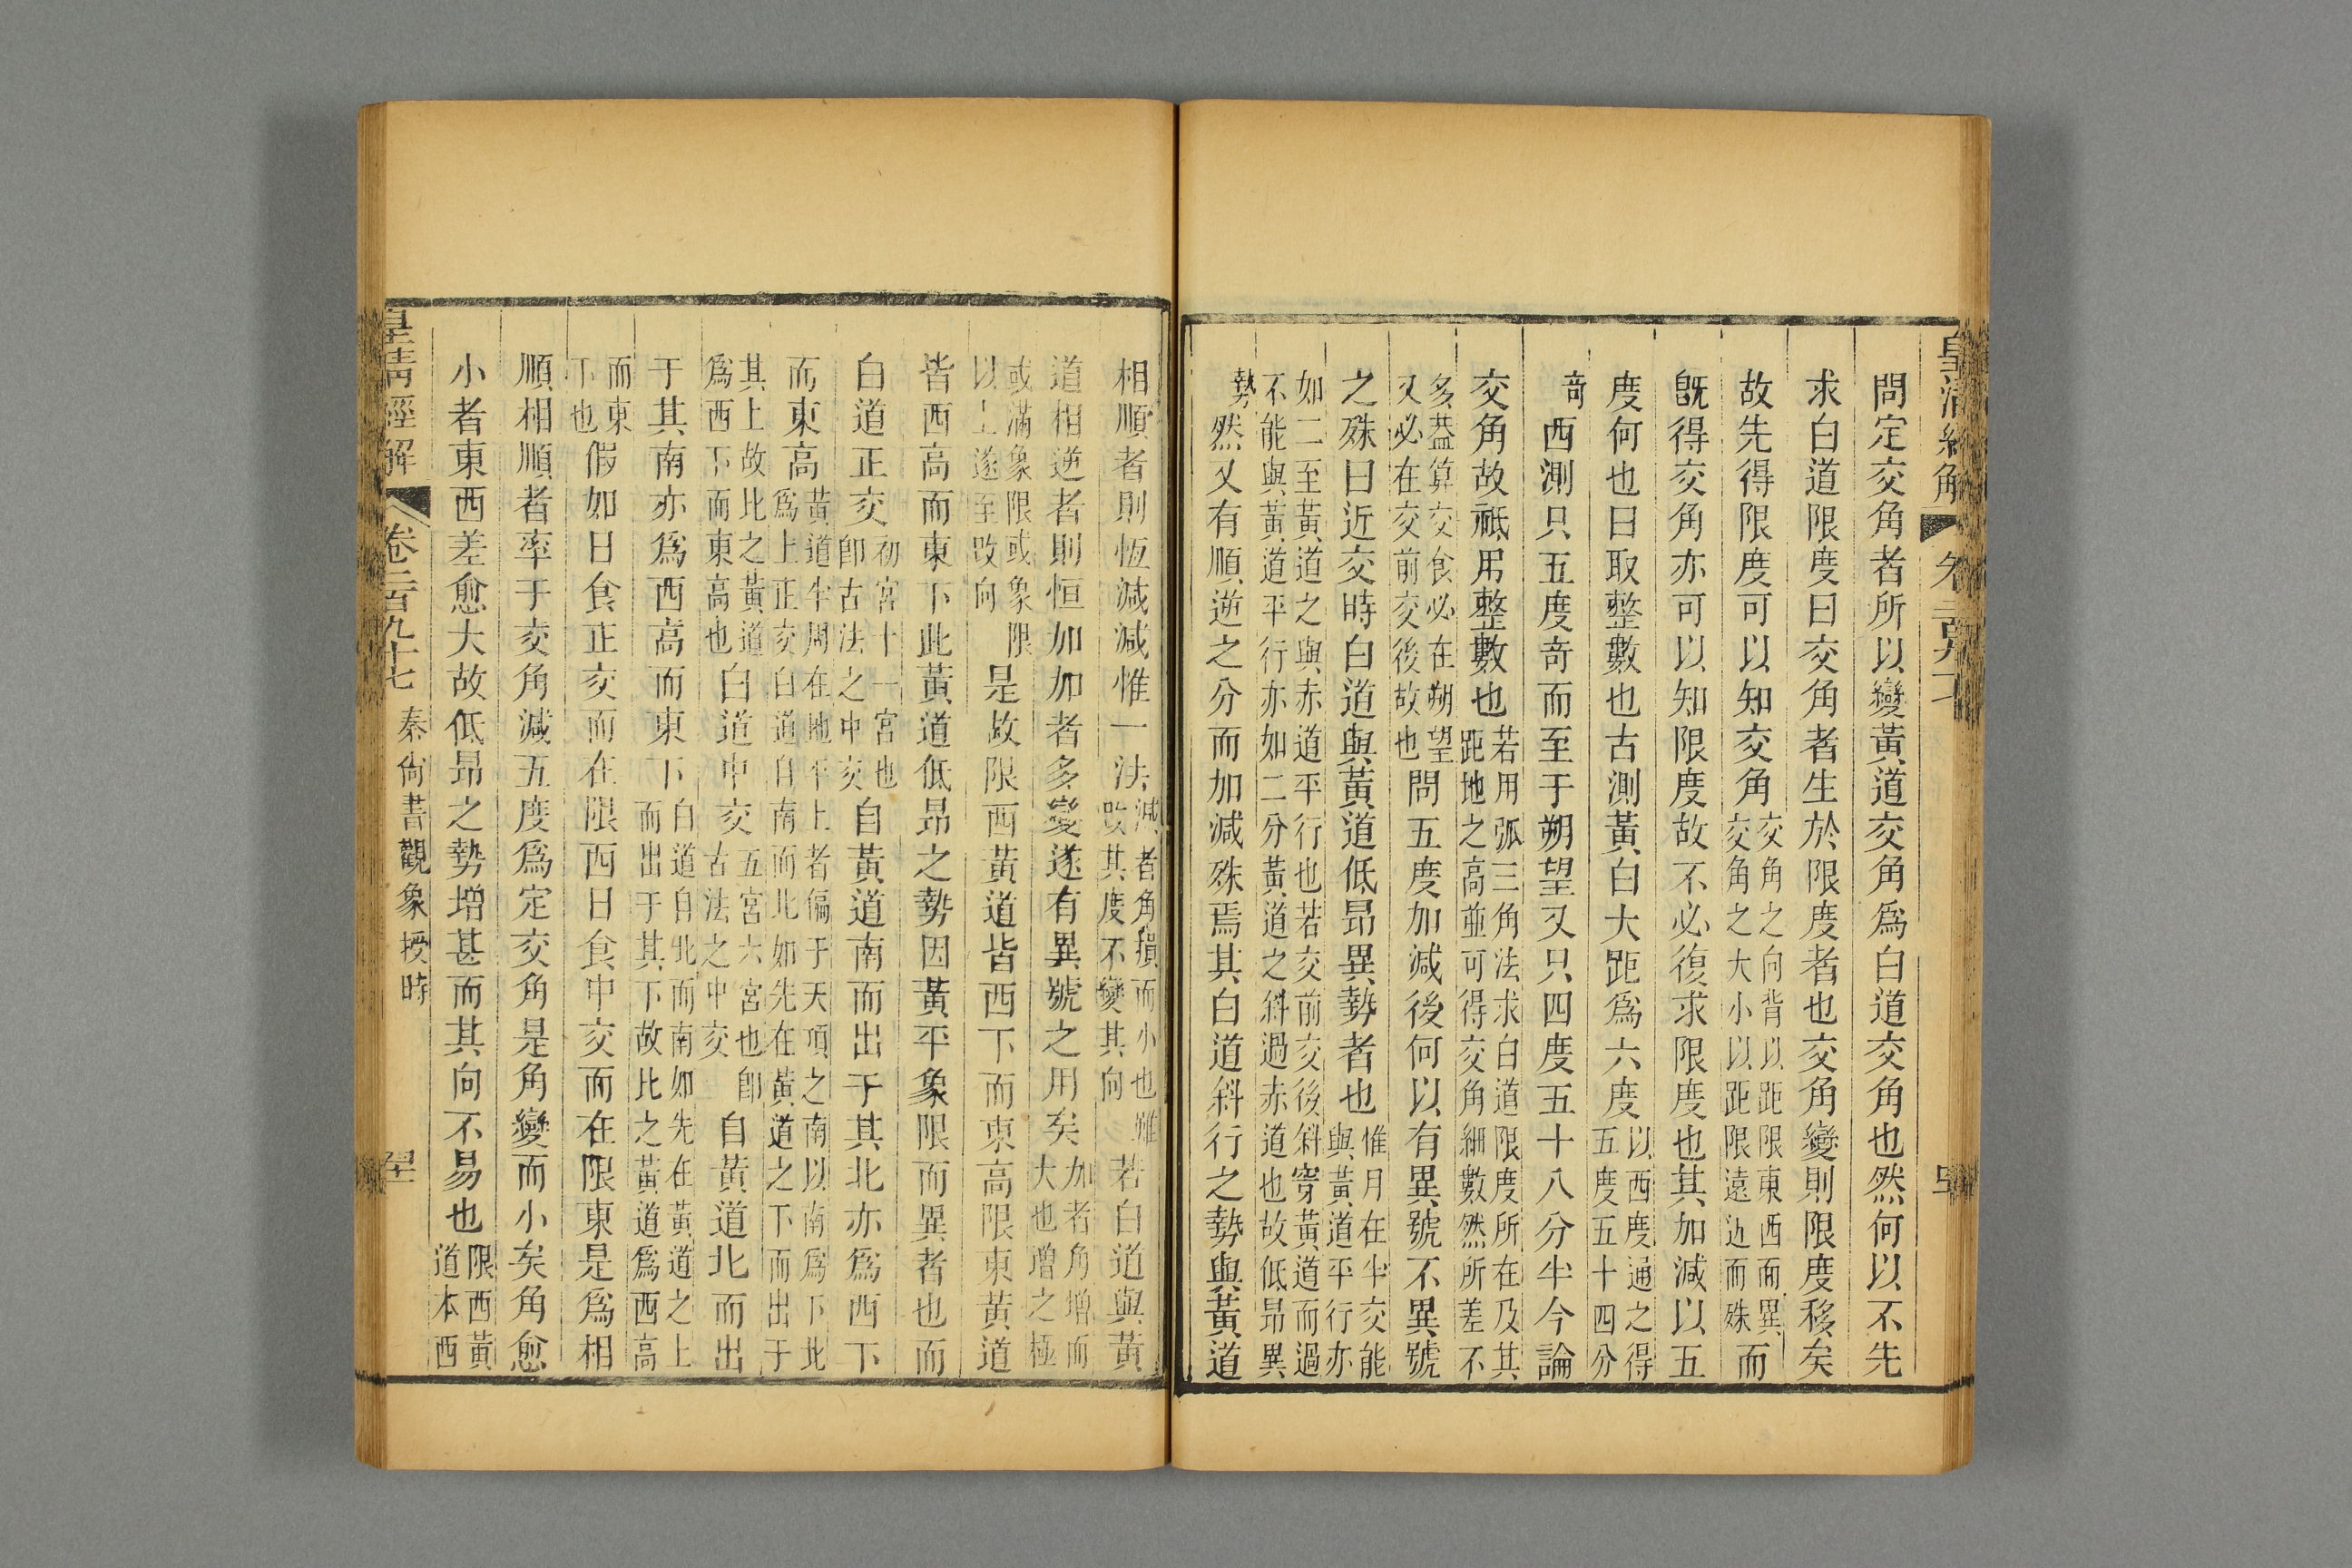 問定交角者所以變黃道交角爲白道交角也然何以不先
求白道限度曰交角者生於限度者也交角變則限度移矣
故先得限度可以知交角交角之向背以距限東西而異交角之大小以距限遠近而殊而
旣得交角亦可以知限度故不必復求限度也其加減以五
度何也曰取整數也古測黃白大距爲六度以西度通之得五度五十四分
奇西測只五度奇而至于朔望又只四度五十八分半今論
交角故祗用整數也若用弧三角法求白道限度所在及其距地之高並可得交角細數然所差不
多葢算交食必在朔望又必在交前交後故也問五度加減後何以有異號不異號
之殊曰近交時白道與黃道低昂異勢者也惟月在半交能與黃道平行亦
如二至黃道之與赤道平行也若交前交後斜穿黃道而過不能與黃道平行亦如二分黃道之斜過赤道也故低昂異
勢然又有順逆之分而加減殊焉其白道斜行之勢與黃道
相順者則恆減減惟一法減者角損而小也雖改其度不變其向若白道與黃
道相逆者則恒加加者多變遂有異號之用矣加者角增而大也增之極
或滿象限或象限以上遂至改向是故限西黃道皆西下而東高限東黃道
皆西高而東下此黃道低昂之勢因黃平象限而異者也而
白道正交初宮十一宮也卽古法之中交自黃道南而出于其北亦爲西下
而東高黃道半周在地平上者偏于天頂之南以南爲下北爲上正交白道自南而北如先在黃道之下而出于
其上故比之黃道爲西下而東高也白道中交五宮六宮也卽古法之中交自黃道北而出
于其南亦爲西高而東下白道自北而南如先在黃道之上而出于其下故比之黃道爲西高
而東下也假如日食正交而在限西日食中交而在限東是爲相
順相順者率于交角減五度爲定交角是角變而小矣角愈
小者東西差愈大故低昂之勢增甚而其向不易也限西黃道本西
皇清經解 卷二百九十七 秦尚書觀象授時